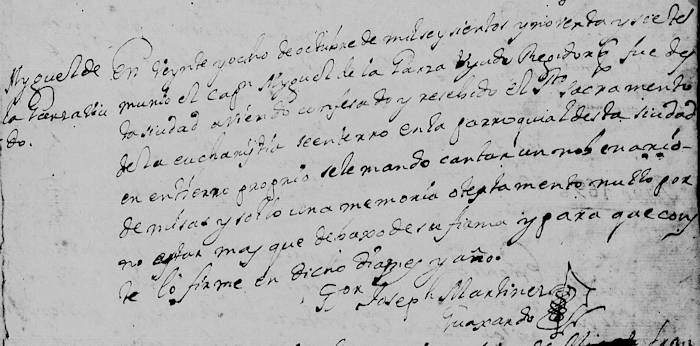 Myguel de
la Garza viu
do.
En Veynte y ocho de octubre de mil y seysientos y noventa y siete
murio el Capn Myguel de la Garza Vyudo Regidor fue desta
ciudad aviendo confesado y resebido el Sto sacramento
de la eucharistia se enterro en la parroquial desta siudad
en entierro proprio se le mando cantar un nobenario
de misas y solo una memoria o testamento nullo por
no estar mas que debaxo de su firma y para que cons
te lo firme en dicho dia mes y año.
Joseph Martinez
Guaxardo